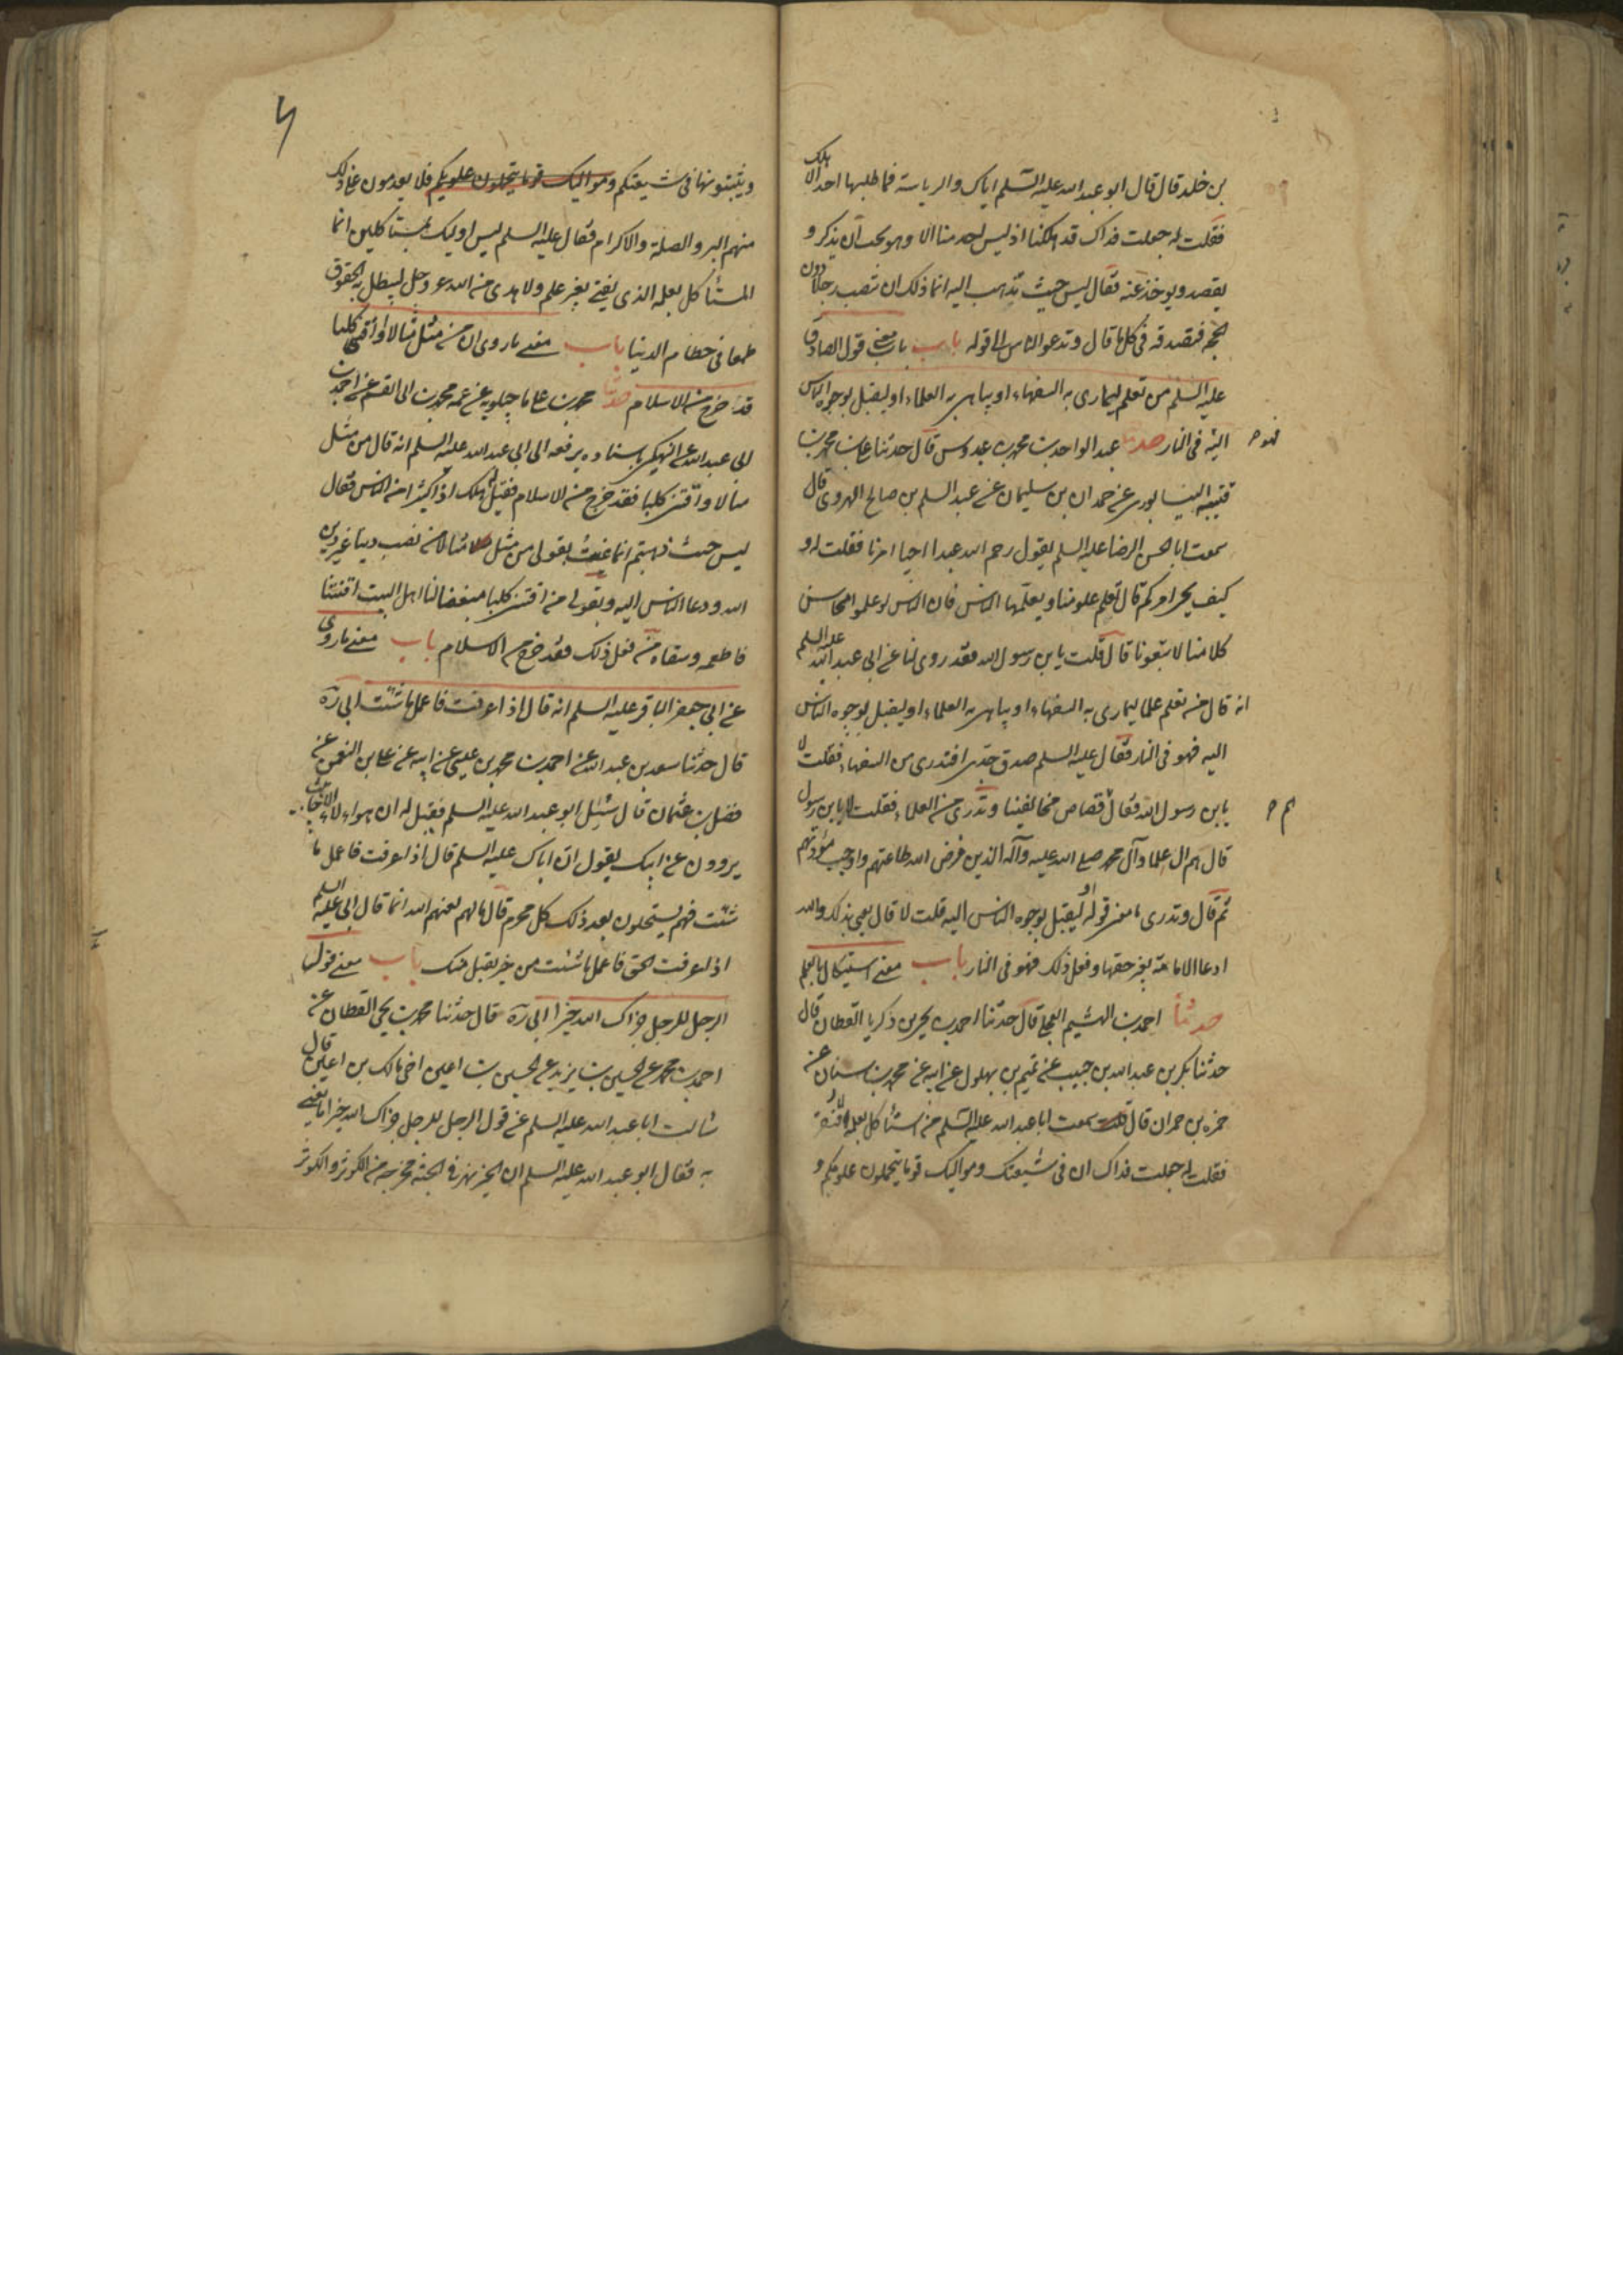 بن خلد قال قال ابو عبد الله عليه السلم اياك والرياسة فما طلبها احد الا هلك
فقلت له جعلت فداك قد هلكنا اذ ليس احد منا الا وهو يحب ان يذكر و
يقصد ويوخذ عنه فقال ليس حيث تذهب اليه انما ذلك ان تنصب رجلا دون
الحجه فتصدقه في كل ما قال وتدعو الناس الى قوله باب معنى قول الصادق
عليه السلم من تعلم علما ليمارى به السفهاء او يباهى به العلماء او ليقبل بوجوه الناس
اليه في النار حدثنا عبد الواحد بن محمد بن عبدوس قال حدثنا على بن محمد بن
فهو
قتيبه النيسابورى عن حمدان بن سليمان عن عبد السلم بن صالح الهروى قال
سمعت ابا الحسن الرضا عليه السلم يقول رحم الله عبدا احيا امرنا فقلت له و
كيف يحيى امركم قال يتعلم علومنا ويعلمها الناس فان الناس لو علموا محاسن
كلامنا لاتبعونا قال قلت يابن رسول الله فقد روى لنا عن ابى عبد الله عليه السلم
انه قال من تعلم علما ليمارى به السفهاء او يباهى به العلماء او ليقبل بوجوه الناس
اليه فهو في النار فقال عليه السلم صدق جدى افتدرى من السفهاء فقلت لا
يابن رسول الله فقال قصاص مخالفينا وتدرى من العلماء فقلت لا يابن رسول
قال هم ال علماء آل محمد صلى الله عليه وآله الذين فرض الله طاعتهم واوجب مودتهم
ثم قال وتدرى ما معنى قوله او ليقبل بوجوه الناس اليه قلت لا قال يعنى بذلك والله
ادعا الامامة بغير حقها ومن فعل ذلك فهو في النار باب معنى استيكال بالعلم
حدثنا احمد بن الهيثم العجلى قال حدثنا احمد بن يحيى بن زكريا القطان قال
حدثنا بكر بن عبد الله بن حبيب عن تميم بن بهلول عن ابيه عن محمد بن سنان عن
حمزه بن حمران قال سمعت ابا عبد الله عليه السلم من استاكل بعلمه افتقر
فقلت له جعلت فداك ان في شيعتك ومواليك قوما يتحملون علومكم و
ويثبتونها في شيعتكم ومواليك قوما يتحملون علومكم فلا يعدمون على ذلك
منهم البر والصلة والاكرام فقال عليه السلم ليس اوليك بمستاكلين انما
المستاكل بعلمه الذى يفتى بغير علم ولا هدى من الله عز وجل ليبطل به الحقوق
طمعا في حطام الدنيا باب معنى ما روى ان من مثل مثالا او اقتنى كلبا
قد خرج من الاسلام حدثنا محمد بن على ماجيلويه عن عمه محمد بن ابى القسم عن احمد بن
ابى عبد الله عن النهيكى باسناده يرفعه الى ابى عبد الله عليه السلم انه قال من مثل
مثالا او اقتنى كلبا فقد خرج من الاسلام فقيل له هلك اذا كثير من الناس فقال
ليس حيث ذهبتم انما عنيت بقولى من مثل مثالا من نصب دينا غير دين
الله ودعا الناس اليه وبقولى من اقتنى كلبا مبغضا لنا اهل البيت اقتناه
فاطعمه وسقاه من فعل ذلك فقد خرج من الاسلام باب معنى ما روى
عن ابى جعفر الباقر عليه السلم انه قال اذا عرفت فاعمل ما شئت ابى ره
قال حدثنا سعد بن عبد الله عن احمد بن محمد بن عيسى عن ابيه عن على بن النعمن عن
فضل بن عثمان قال سئل ابو عبد الله عليه السلم فقيل له ان هؤلاء الاخابث
يروون عن ابيك يقول ان اباك عليه السلم قال اذا عرفت فاعمل ما
شئت فهم يستحلون بعد ذلك كل محرم قال ما لهم لعنهم الله انما قال ابى عليه السلم
اذا عرفت الحق فاعمل ما شئت من خير يقبل منك باب معنى قول
الرجل للرجل جزاك الله خيرا ابى ره قال حدثنا محمد بن يحيى القطان عن
احمد بن محمد عن الحسين بن يزيد عن الحسين بن اعين اخى مالك بن اعين قال
سالت ابا عبد الله عليه السلم عن قول الرجل للرجل جزاك الله خيرا ما يعنى
به فقال ابو عبد الله عليه السلم ان الخير نهر في الجنة مخرجه من الكوثر والكوثر